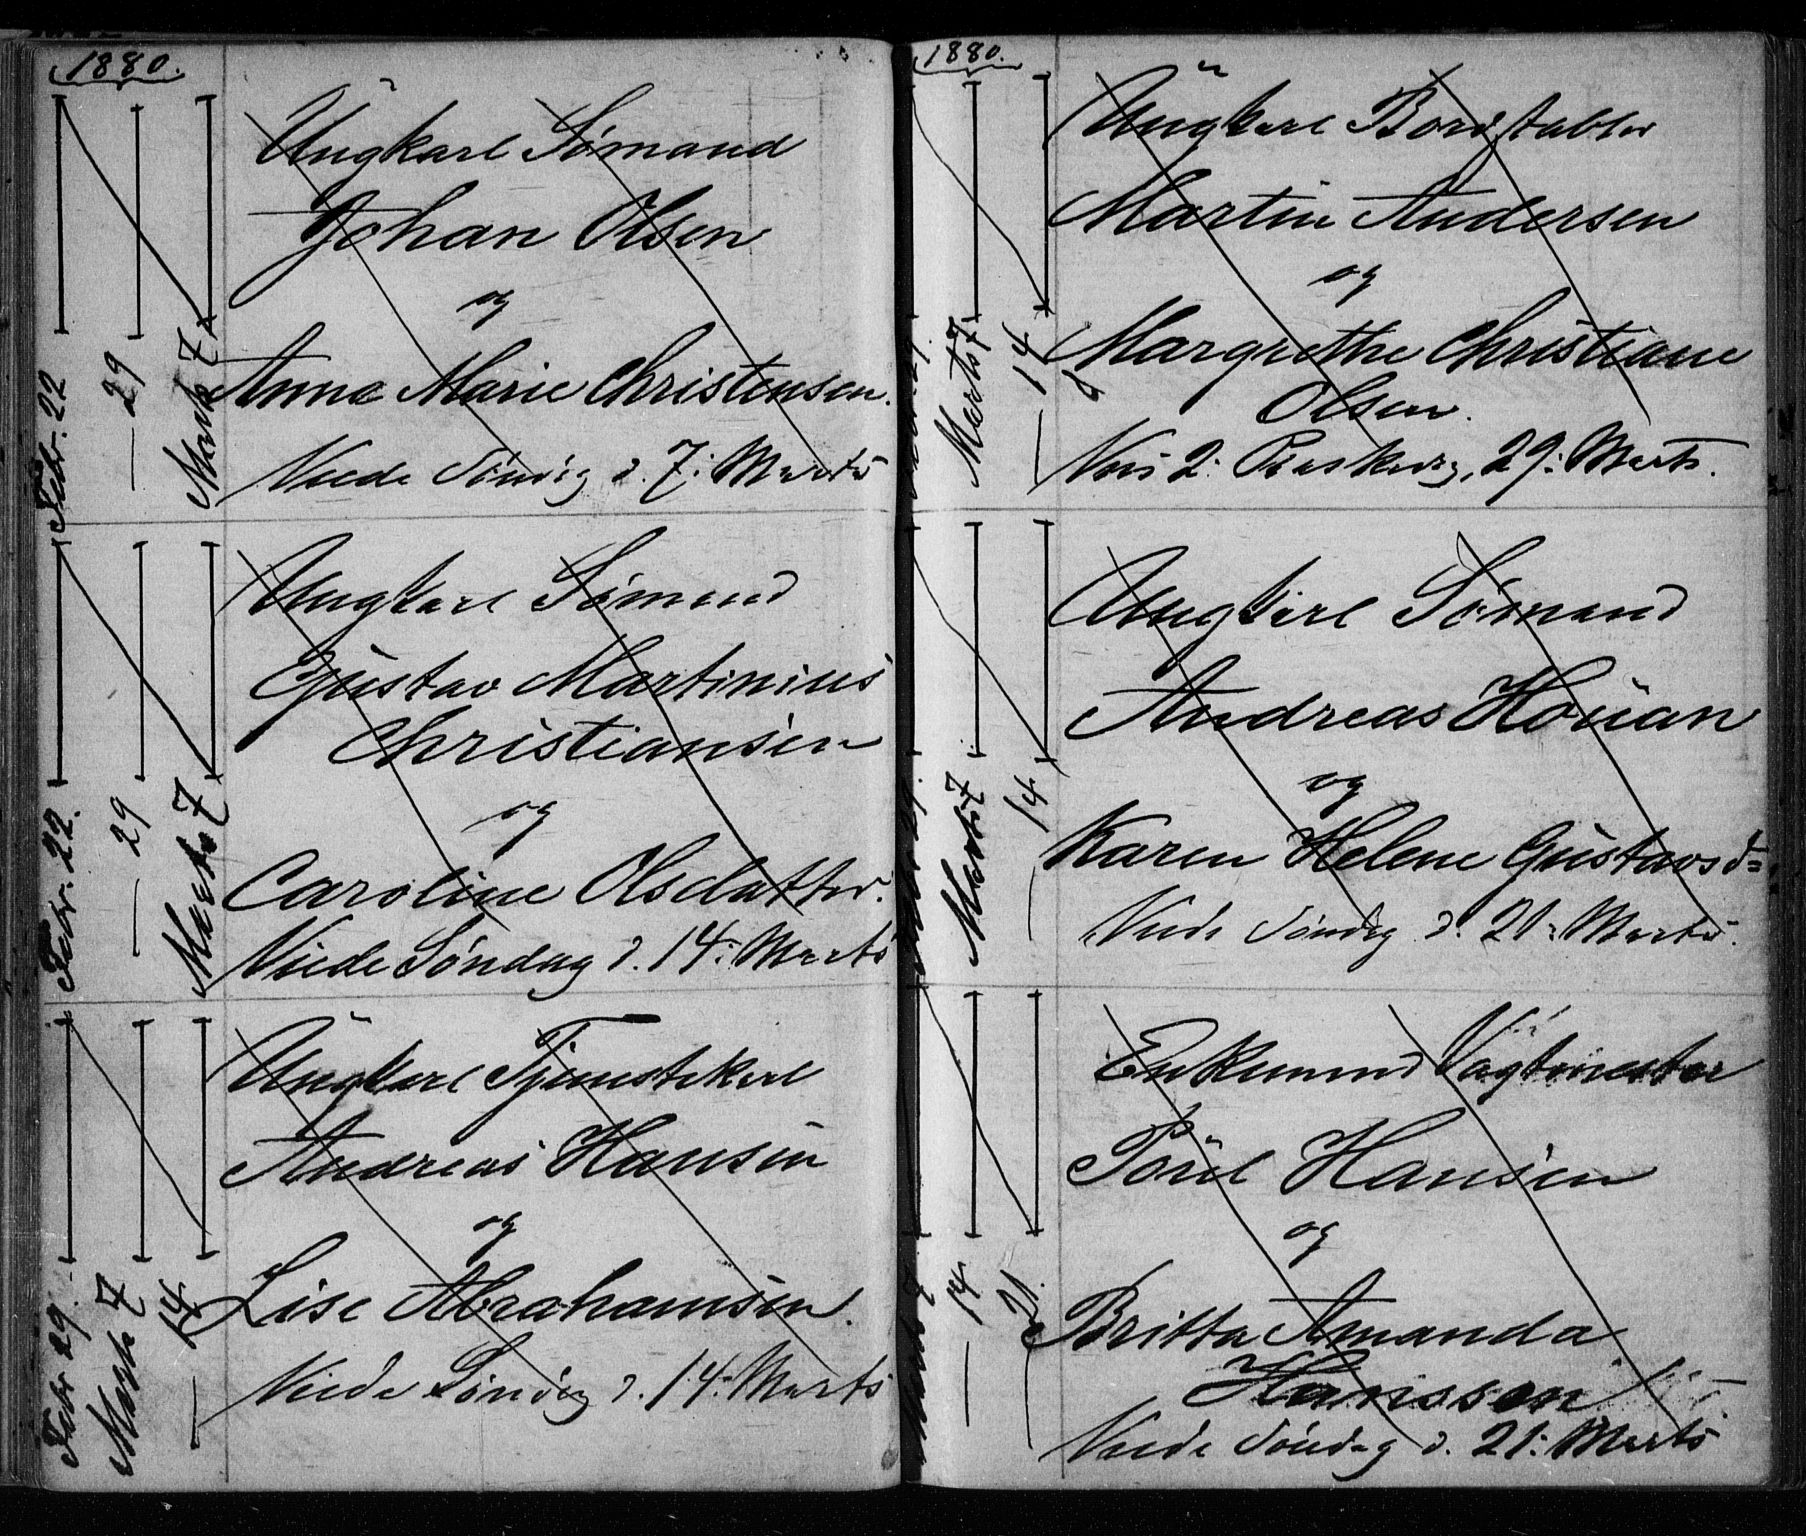 1880.
Febr. 22
— 29
Marts 7
Ungkarl Sømand
Johan Olsen
og
Anne Marie Christensen.
Viede Søndag d. 7: Marts
Febr. 22.
— 29
Marts 7
Ungkarl Sømand
Gustav Martinius
Christiansen
og
Caroline Olsdatter.
Viede Søndag d. 14: Marts
Febr 29.
Marts 7
— 14
Ungkarl Tjenestekarl
Andreas Hansen
og
Lise Abrahamsen.
Viede Søndag d. 14: Marts
1880.
Marts 7
— 14
Ungkarl
Martin Andersen
og
Margrethe Christiane
Olsen.
Vies 2: Paaskedag, 29: Marts.
Marts 7
— 14
Ungkarl Sømand
Andreas Houan
og
Karen Helene Gustavsd=
Viede Søndag d. 21: Marts.
— 14
— 21.
Enkemand Vagtmester
Hansen
og
Britta Amanda
Hanssen
Viede Søndag d. 21: Marts